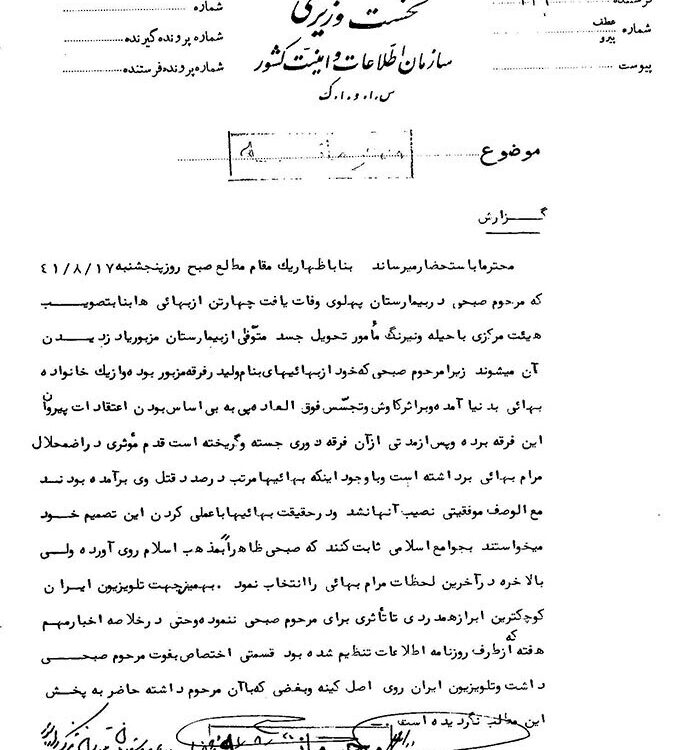 نخست وزیری
سازمان اطلاعات و امنیت کشور
س.ا.و.ا.ک
شماره
شماره پرونده گیرنده
شماره پرونده فرستنده
شماره عطف
پیرو
پیوست
موضوع
گـــزارش
محترما باستحضار میرساند بنا باظهار یك مقام مطلع صبح روز پنجشنبه ٤١/٨/١٧
که مرحوم صبحی در بیمارستان پهلوی وفات یافت چهار تن از بهائی ها بنا بتصویـــب
هیئت مرکزی با حیله و نیرنگ مأمور تحویل جسد متوفی از بیمارستان مزبور یا دزدیـــدن
آن میشوند زیرا مرحوم صبحی که خود از بهائیهای بنام ولیدر فرقه مزبور بوده و از یك خانواده
بهائی بدنیا آمده و براثر کاوش و تجسّس فوق العاده پی به بی اساس بودن اعتقادات پیروان
این فرقه برده و پس از مدتی از آن فرقه دوری جسته و گریخته است قدم مؤثری در اضمحلال
مرام بهائی برداشته است و با وجود اینکه بهائیها مرتب در صدد قتل وی برآمده بودنـــد
مع الوصف موفقیتی نصیب آنها نشد و در حقیقت بهائیها با عملی کردن این تصمیم خـــود
میخواستند بجوامع اسلامی ثابت کنند که صبحی ظاهراً بمذهب اسلام روی آورده ولـــی
بالاخره در آخرین لحظات مرام بهائی را انتخاب نمود . بهمین جهت تلویزیون ایـــران
کوچکترین ابراز همدردی تا تأثری برای مرحوم صبحی ننموده و حتی در خلاصه اخبار مهـــم
هفته که از طرف روزنامه اطلاعات تنظیم شده بود قسمتی اختصاص بفوت مرحوم صبحـــی
داشت و تلویزیون ایران روی اصل کینه و بغضی که با آن مرحوم داشته حاضر به پخـــش
این مطالب نگردیده است .